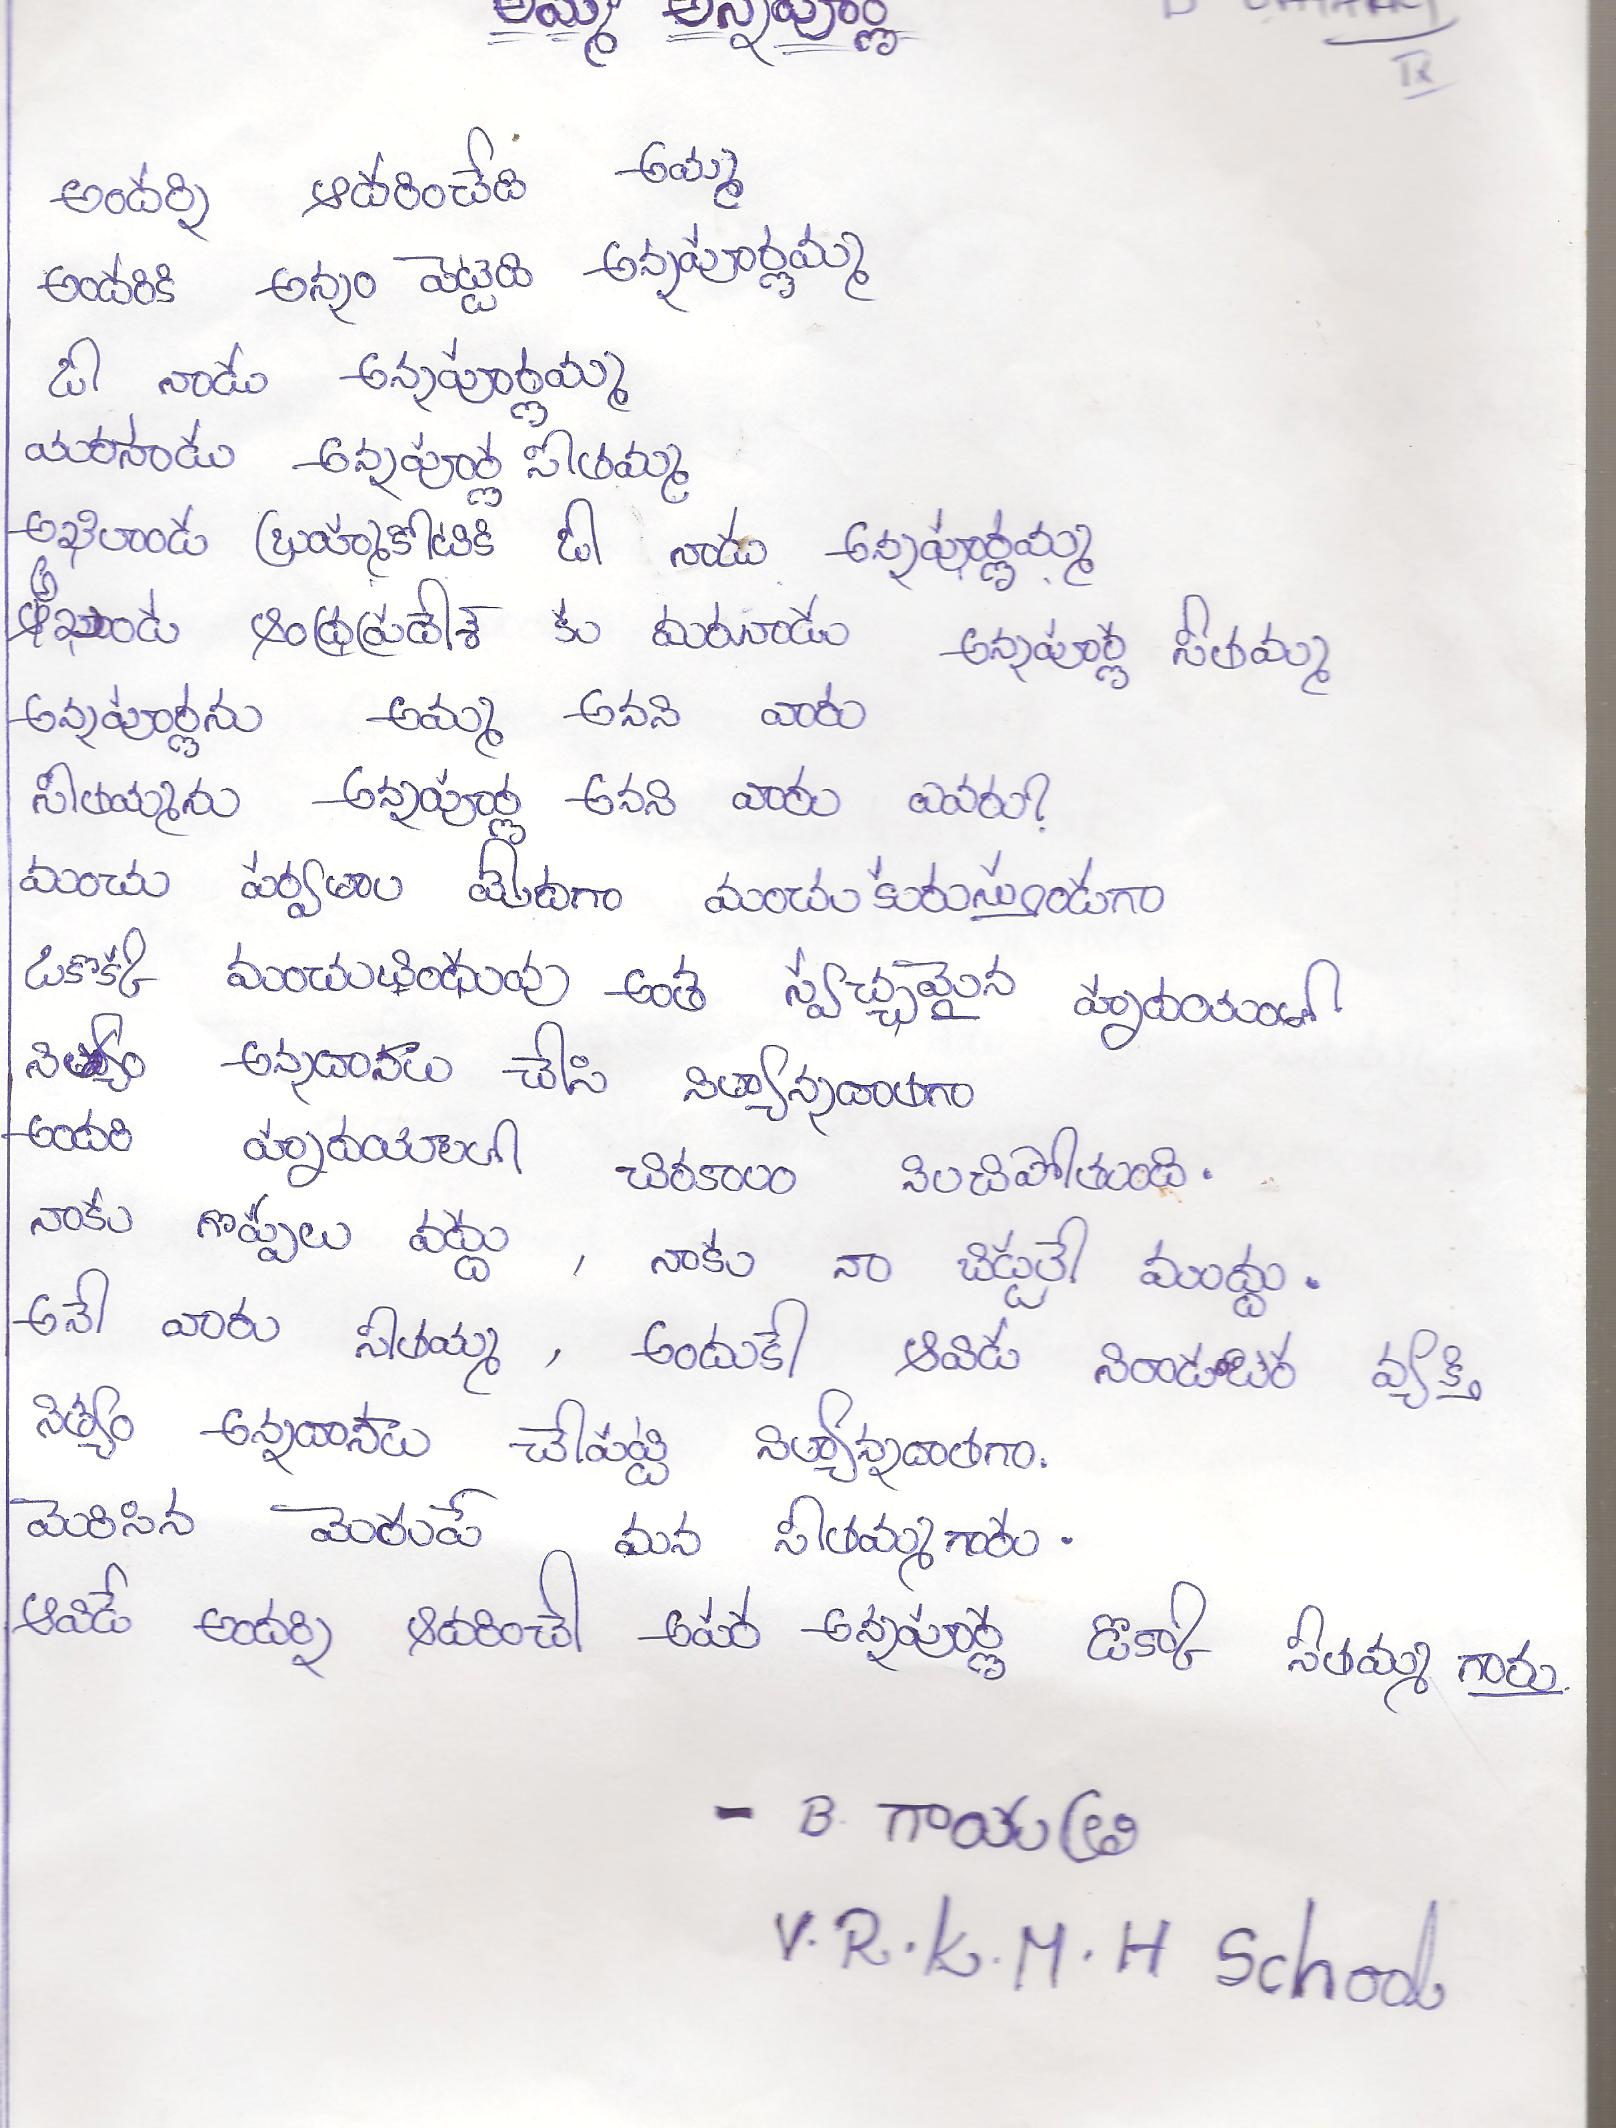 అమ్మ అన్నపూర్ణ
IX
అందర్ని ఆదరించేది అమ్మ
అందరికి అన్నం పెట్టెది అన్నపూర్ణమ్మ
ఓ నాడు అన్నపూర్ణమ్మ
మరునాడు అన్నపూర్ణ సీతమ్మ
అఖిలాండ బ్రహ్మకోటికి ఓ నాడు అన్నపూర్ణమ్మ
అఖండ ఆంధ్రప్రదేశ్ కు మరునాడు అన్నపూర్ణ సీతమ్మ
అన్నపూర్ణను అమ్మ అనని వారు
సీతమ్మను అన్నపూర్ణ అనని వారు ఎవరు?
మంచు పర్వతాల మీదగా మంచుకురుస్తుండగా
ఒకొక్క మంచుబిందువు అంత స్వచ్ఛమైన హృదయంతో
నిత్యం అన్నదానాలు చేసి నిత్యాన్నదాతగా
అందరి హృదయాలలో చిరకాలం నిలచిపోతుంది.
నాకు గొప్పలు వద్దు, నాకు నా బిడ్డలే ముద్దు.
అనే వారు సీతమ్మ, అందుకే ఆవిడ నిరాడంబర వ్యక్తి
నిత్యం అన్నదానాలు చేపట్టి నిత్యాన్నదాతగా.
మెరిసిన మెరుపే మన సీతమ్మగారు.
ఆవిడే అందర్ని ఆదరించే అపర అన్నపూర్ణ డొక్కా సీతమ్మ గారు.
- B. గాయత్రి
V.R.K.M.H School